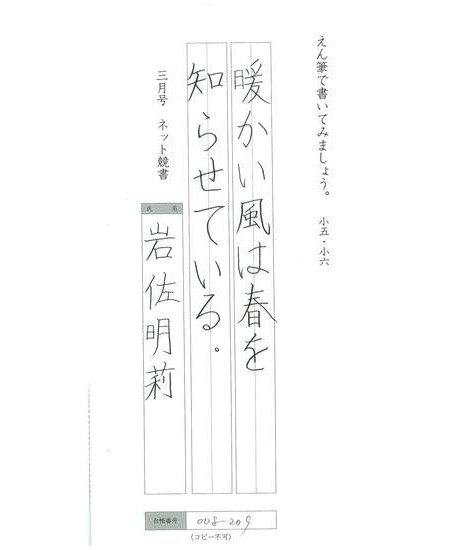 えん筆で書いてみましょう。 小五・小六
暖かい風は春を
知らせている。
三月号 ネット競書
氏名
岩佐明莉
台帳番号
008-209
(コピー不可)